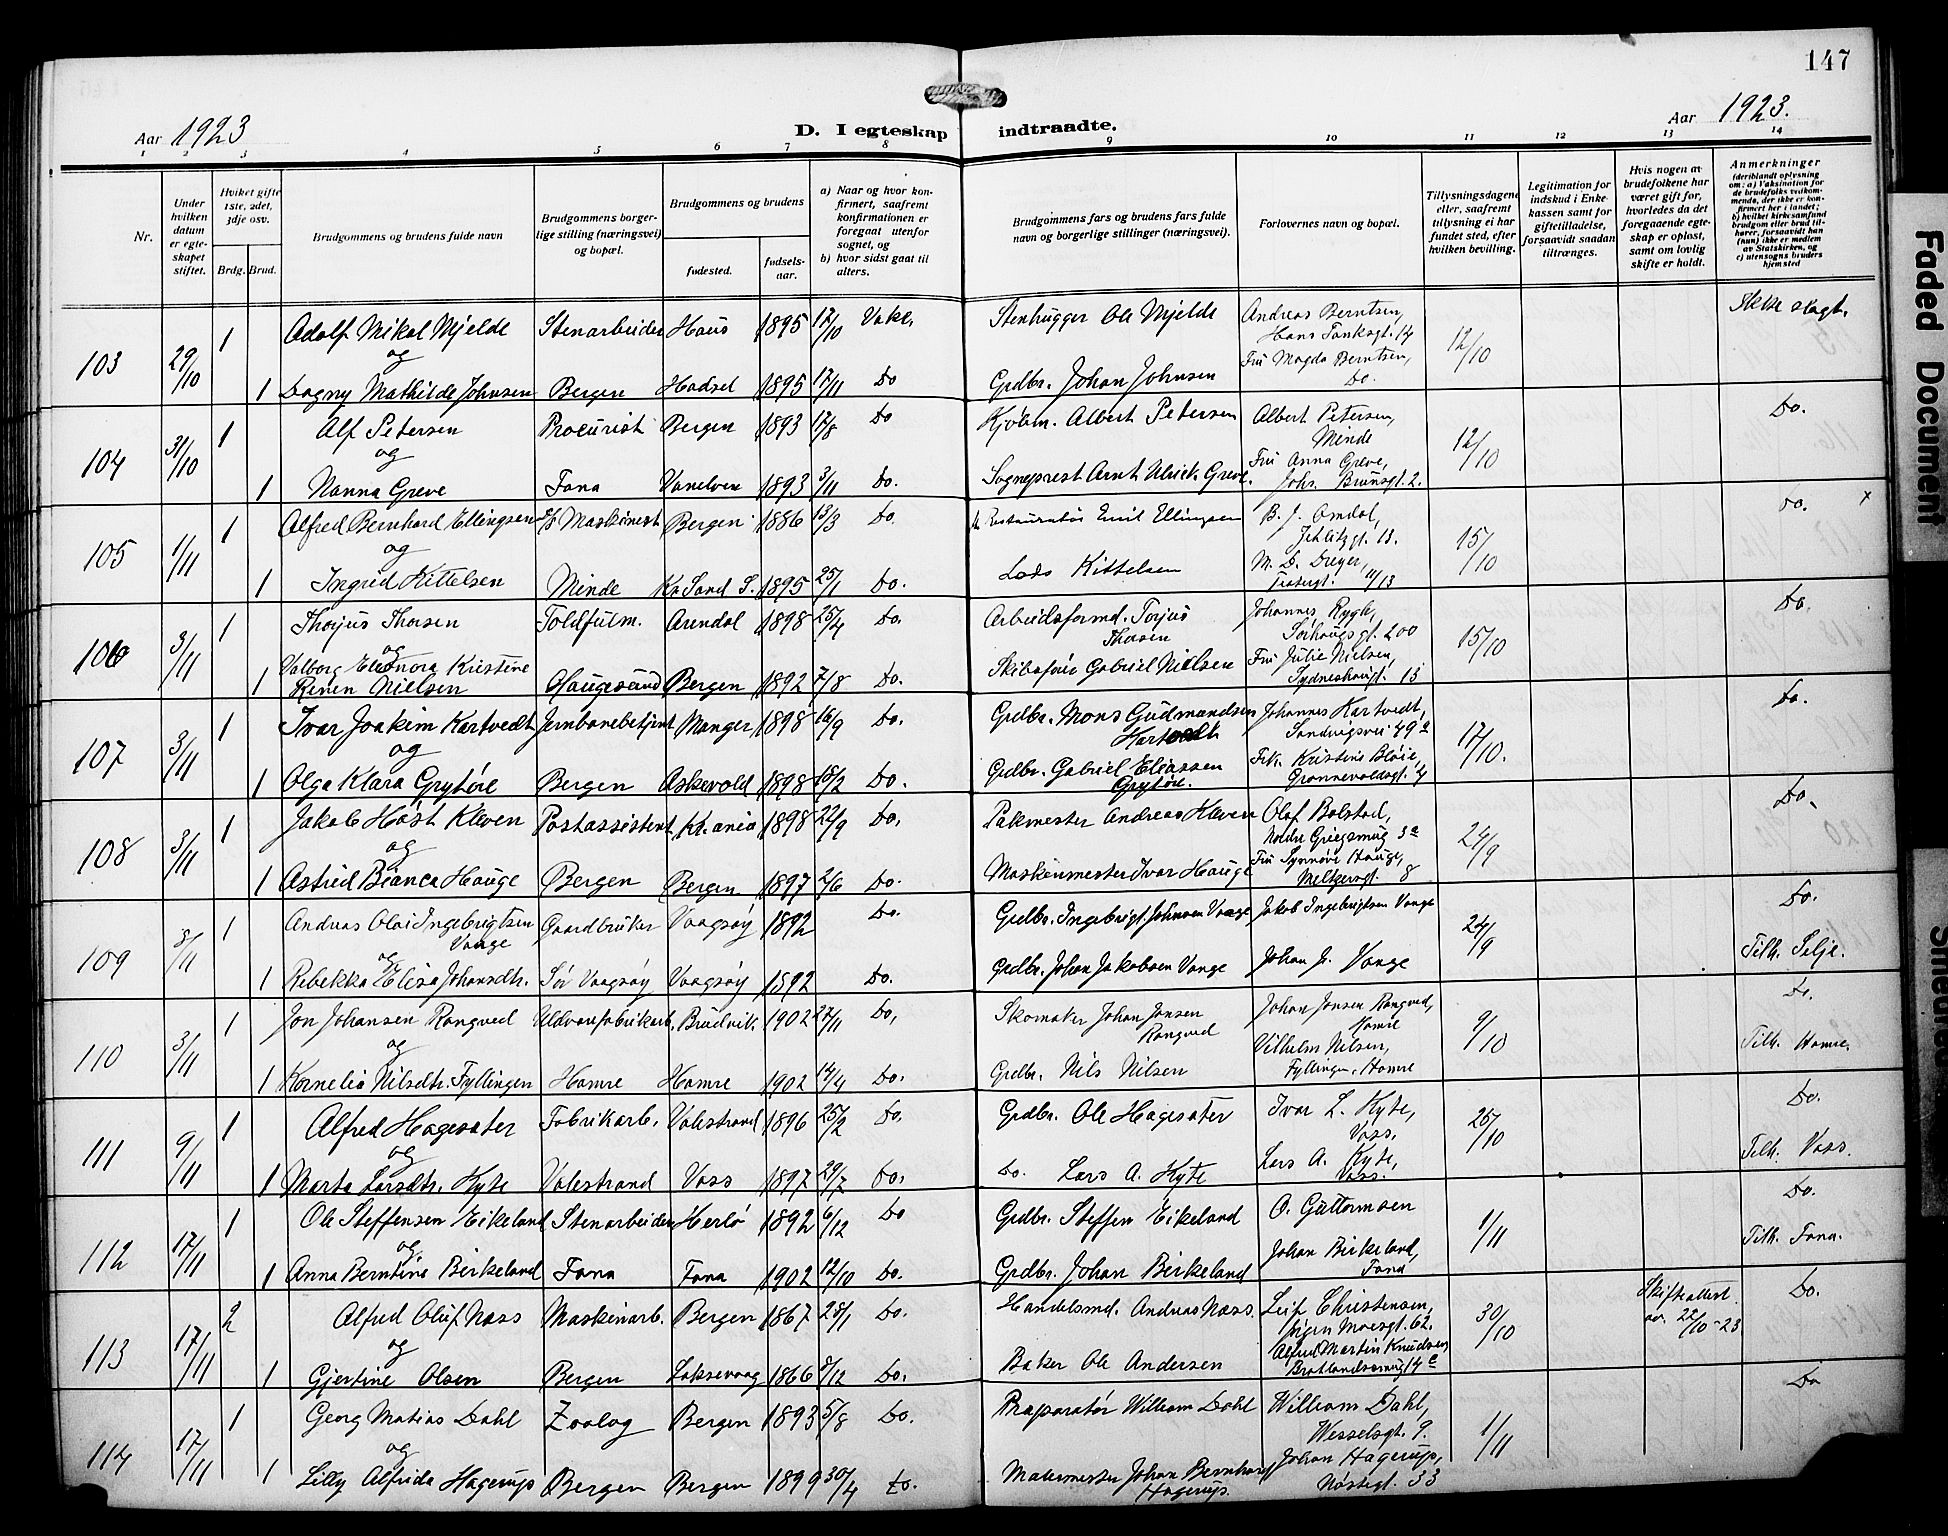 147
Aar 1923
D. I egteskap indtraadte.
Aar 1923.
1 2 3 4 5 6 7 8 9 10 11 12 13 14
Nr.
Under hvilken datum er egteskapet stiftet.
Hviket gifte 1ste, 2det, 3dje osv.
Brdg. Brud.
Brudgommens og brudens fulde navn
Brudgommens borgerlige stilling (næringsvei) og bopæl.
Brudgommens og brudens
fødested.
fødselsaar.
a) Naar og hvor konfirmert, saafremt konfirmationen er foregaat utenfor sognet, og
b) hvor sidst gaat til alters.
Brudgommens fars og brudens fars fulde navn og borgerlige stillinger (næringsvei).
Forlovernes navn og bopæl.
Tillysningsdagene eller, saafremt tillysning ei har fundet sted, efter hvilken bevilling.
Legitimation for indskud i Enkekassen samt for giftetilladelse, forsaavidt saadan tiltrænges.
Hvis nogen av brudefolkene har været gift før, hvorledes da det foregaaende egteskap er opløst, samt om lovlig skifte er holdt.
Anmerkninger (deriblandt oplysning om: a) Vaksination for de brudefolks vedkommende, der ikke er konfirmert her i landet; b) hvilket kirkesamfund brudgom eller brud tilhører, forsaavidt han (hun) ikke er medlem av Statskirken, og c) utensogns bruders hjemsted
103 29/10 1 Adolf Nikal Mjelde Stenarbeider Haus 1895 17/10 Vakc. Stenhugger Ole Mjelde Andreas Berntsen, Hans Tanksgt. 14 12/10 Ikke slegt.
og
1 Dagny Mathilde Johnsen Bergen Hadsel 1895 17/11 Do Grdbr. Johan Johnsen Fru Magda Berntsen, Do.
104 31/10 1 Alf Petersen Procurist Bergen 1893 17/8 Do Kjøbm. Albert Petersen Albert Petersen, Minde 12/10 Do.
og
1 Nanna Greve Fana Vanelven 1893 3/11 Do. Sogneprest Arnt Ulrich Greve. Fru Anna Greve, Johs. Brunsgt. 2.
105 1/11 1 Alfred Bernhard Ellingsen Maskinist Bergen 1886 13/3 Do. Restauratør Emil Ellingsen B. J. Omdal, 13. 15/10 Do. x
og
1 Ingrid Kittelsen Minde Kr.Sand S. 1895 25/1 Do. Lods Kittelsen M. D. Dreyer,
106 3/11 1 Thorjus Thorsen Toldfulm. Arendal 1898 25/4 Do. Arbeidsformd. Torjus Thorsen Johannes Rygh, 200 15/10 Do.
og
1 Valborg Eleonora Kristine Renen Nielsen Haugesund Bergen 1892 7/8 Do. Skibsfører Gabriel Nielsen Fru Julie Nielsen, Sydneshaugt. 13
107 3/11 1 Ivar Joakim Hartvedt Jernbanebetjent Manger 1898 16/9 Do. Grdbr. Mons Gudmundsen Hartvedt Johannes Hartvedt, Sandvigsvei 49a 17/10. Do.
og
1 Olga Klara Grytøre Bergen Askevold 1898 18/2 Do. Grdbr. Gabriel Eliassen Grytøre. Frk. Kristine Bløie, Grønnevoldsgt. 4
108 3/11 1 Jakob Høst Klæven Postassistent Kr.ania 1898 22/9 Do. Pakmester Andreas Klæven Olaf Bolstad, 3a 24/9 Do.
og
1 Astrid Bianca Hauge Bergen Bergen 1897 2/6 Do. Maskinmester Ivar Hauge Fru Synnøve Hauge, Meltzersgt. 8
109 3/11 1 Andreas Olai Ingebrigtsen Vaage Gaardbruker Vaagsøy 1892 Do. Grdbr. Ingebrigt Johnsen Vaage Jakob Ingebrigtsen Vaage 24/9 Do.
og
1 Rebekka Elisa Johansdtr. Sør Vaagsøy Vaagsøy 1892 Do. Grdbr. Johan Jakobsen Vaage Johan J. Vaage Tilh. Selje.
110 3/11 1 Jon Johansen Rongved Uldvarefabrikarb. Bruvik 1902 27/11 Do. Skomaker Johan Jonsen Rongved Johan Jonsen Rongved, Hamre 9/10 Do.
og
1 Kornelia Nilsdtr. Fyllingen Hamre Hamre 1902 14/4 Do. Grdbr. Nils Nilsen Vilhelm Nilsen, Fyllingen, Hamre Tilh. Hamre.
111 9/11 1 Alfred Hagesæter Fabrikarb. Valestrand 1896 25/2 Do. Grdbr. Ole Hagesæter Ivar L. Kyte, Voss. 26/10 Do.
og
1 Marta Larsdtr. Kyte Valestrand Voss 1897 29/7 Do. Do. Lars A. Kyte Lars A. Kyte, Voss. Tilh. Voss.
112 17/11 1 Ole Steffensen Eikeland Stenarbeider Herlø 1892 6/12 Do Grdbr. Steffen Eikeland O. Guttormsen 1/11 Do.
og
1 Anna Berntine Birkeland Fana Fana 1902 12/10 Do. Grdbr. Johan Birkeland Johan Birkeland, Fana Tilh. Fana.
113 17/11 2 Alfred Oluf Næss Maskinarb. Bergen 1867 28/1 Do. Handelsmd. Andreas Næss. Leif Christensen, Jørgen Moesgt. 62. 30/10 Skifteattest av. 22/10-23 Do.
og
1 Gjertine Olsen Bergen Laksevaag 1866 8/12 Do. Baker Ole Andersen Alfred Martin Knudsen, Bratlandssmug 14c
114 17/11 1 Georg Matias Dahl Zoolog Bergen 1893 5/8 Do. Præparatør William Dahl William Dahl, Wesselsgt. 9. 1/11 Do
og
1 Lilly Alfrida Hagerups Bergen Bergen 1899 30/4 Do. Malermester Johan Bernhard Hagerups. Johan Hagerups, Nøstegt. 33
Faded Document